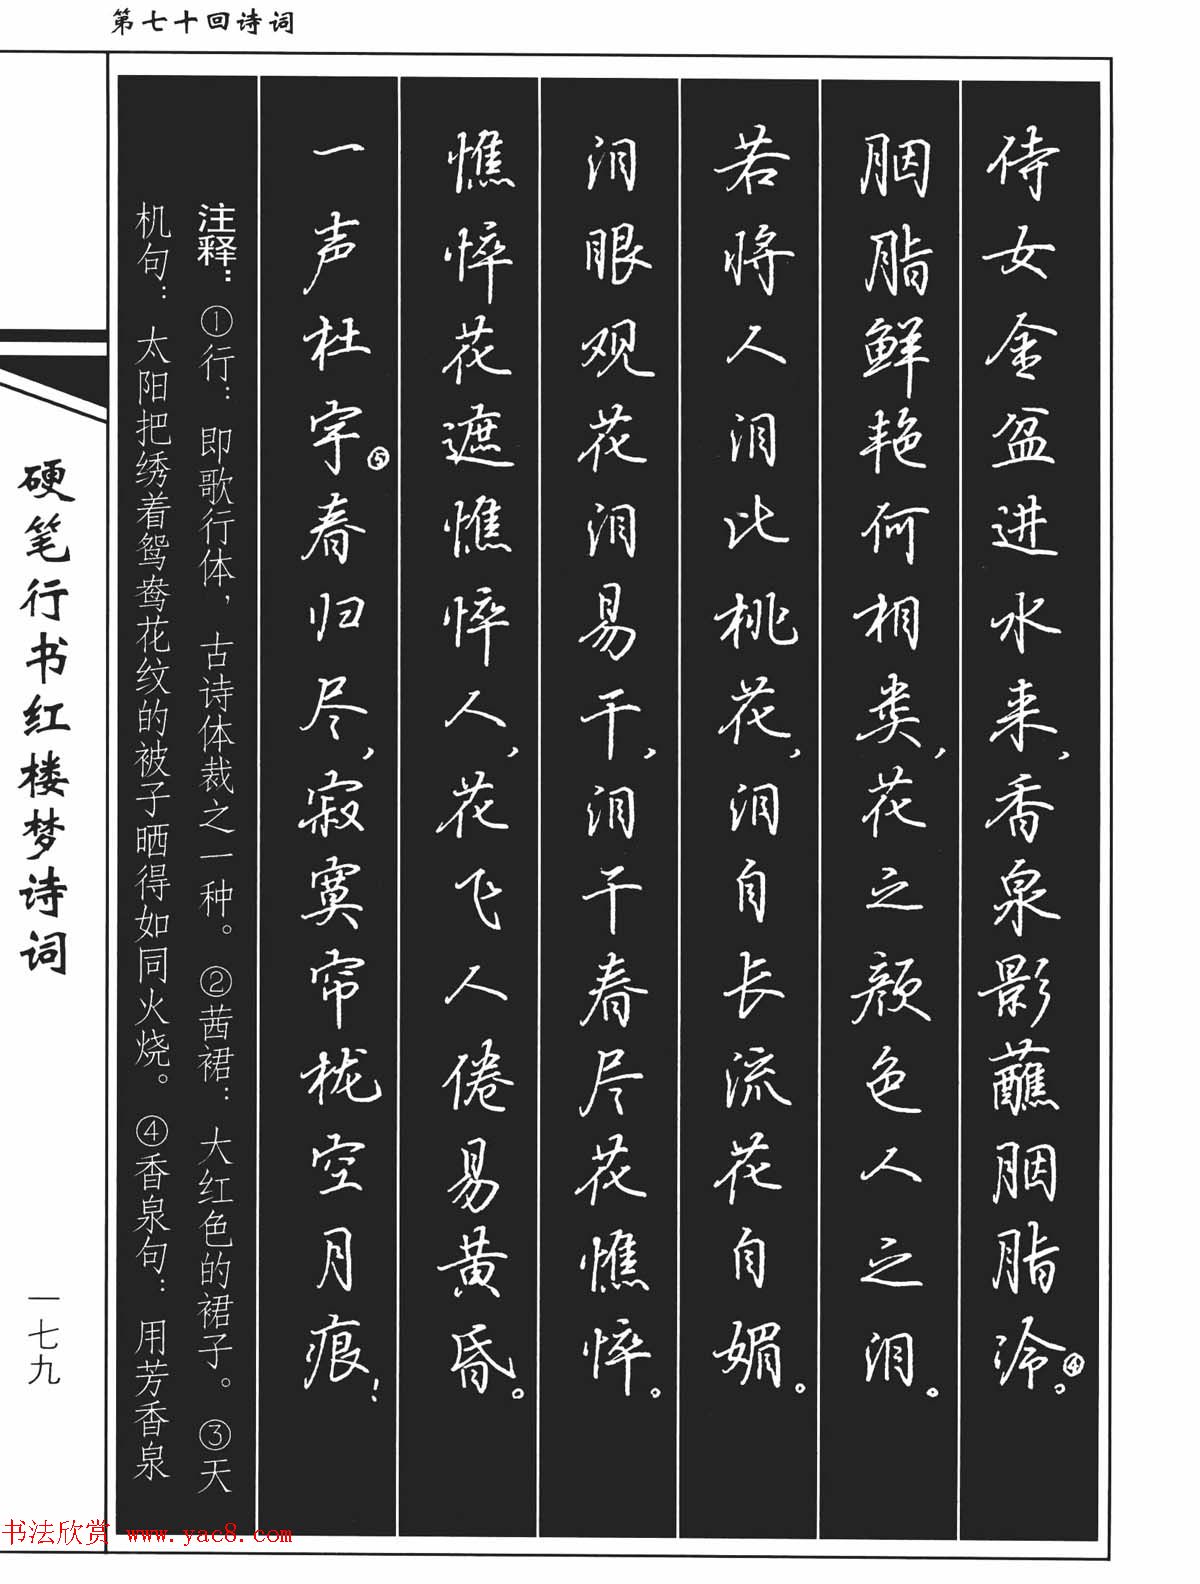 第七十回诗词
侍女金盆进水来，香泉影蘸胭脂冷④。
胭脂鲜艳何相类，花之颜色人之泪。
若将人泪比桃花，泪自长流花自媚。
泪眼观花泪易干，泪干春尽花憔悴。
憔悴花遮憔悴人，花飞人倦易黄昏。
一声杜宇⑤春归尽，寂寞帘栊空月痕！
注释：①行：即歌行体，古诗体裁之一种。②茜裙：大红色的裙子。③天
机句：太阳把绣着鸳鸯花纹的被子晒得如同火烧。④香泉句：用芳香泉
硬笔行书红楼梦诗词
一七九
书法欣赏 www.yac8.com